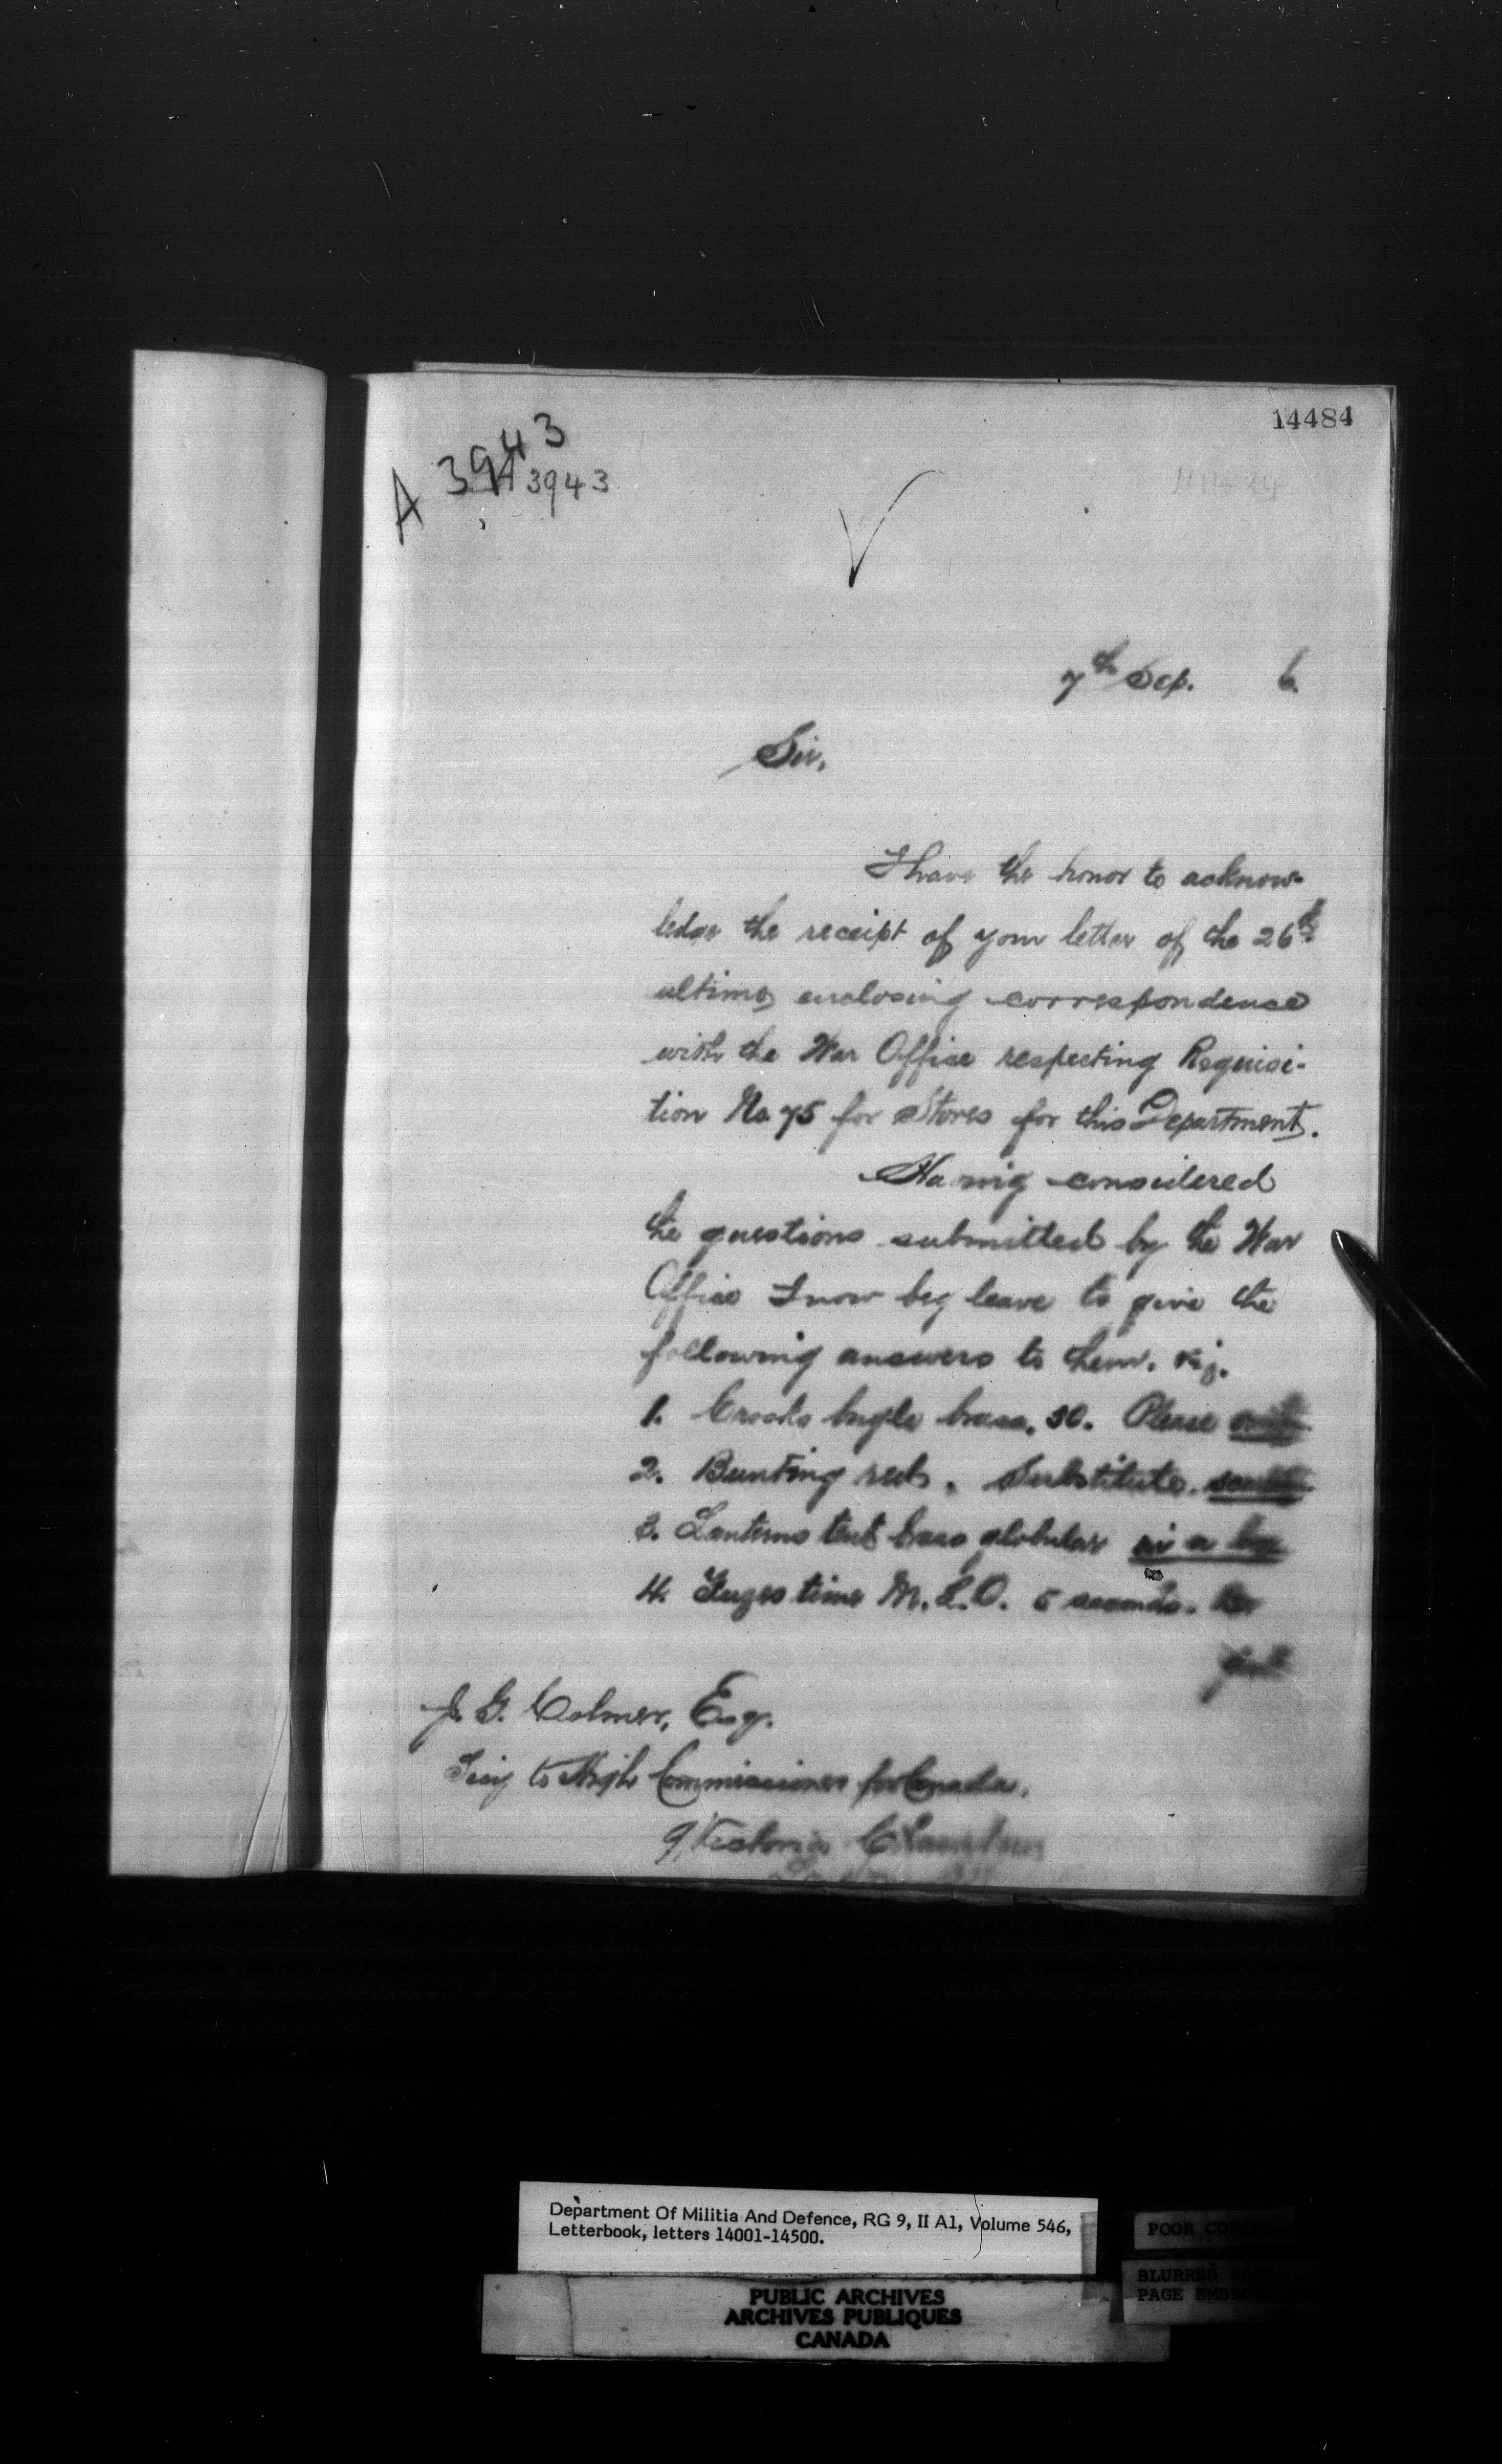 14484
A 3943
A 3943
7th Sep. 6.
Sir,
I have the honor to acknow-
ledge the receipt of your letter of the 26th
ultimo, enclosing correspondence
with the War Office respecting Requisi-
tion No 75 for Stores for this Department.
Having considered
the questions submitted by the War
Office I now beg leave to give the
following answers to them. viz.
1. Crooks bugle brass, 30. Please
2. Bunting red. Substitute.
3. Lanterns tent brass globular
4. Fuzes time M.L.O. 5 seconds.
J. G. Colmer, Esq.
Secy to High Commissioner for Canada,
9, Victoria Chambers
Department Of Militia And Defence, RG 9, II A1, Volume 546,
Letterbook, letters 14001-14500.
PUBLIC ARCHIVES
ARCHIVES PUBLIQUES
CANADA
POOR
BLURRED
PAGE